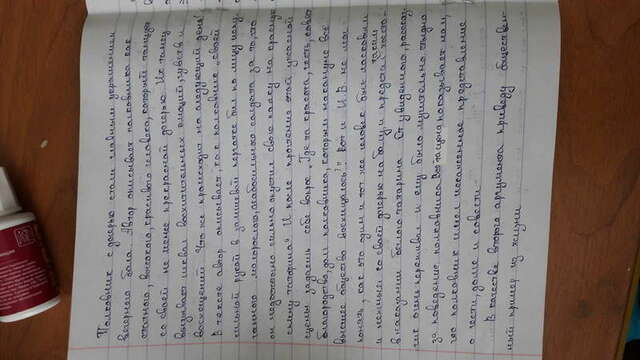 Полковник с дочерью стали главным украшением
вечернего бала. Автор описывает полковника как
статного, высокого, красивого человека, который танцует
со своей не менее прекрасной дочерью. Их танец
вызывает шквал восхитительных эмоций, чувств и
восхищений. Что же происходит на следующий день?
В тексте автор описывает, как полковник „своей
сильной рукой в замшевой перчатке бил по лицу испу-
ганного малорослого, слабосильного солдата за то, что
он недостаточно сильно опустил свою палку на красную
спину татарина". И после прочтения этой ужасной
сцены задаешь себе вопрос „Где та красота, честь, совесть
благородство, долг полковника, которым накануне всё
высшее общество восхищалось?" Вот и И.В. не мог
понять, как это один и тот же человек был ласковым
и нежным со своей дочерью на балу, и предстал таким жесто-
в наказании беглого татарина. От увиденного, рассказ-
чик очень переживал и ему было мучительно стыдно
за поведение полковника. Вся сцена показывает нам,
что полковник имел искаженное представление
о чести, долге и совести.
В качестве второго аргумента приведу обществен-
ный пример из жизни